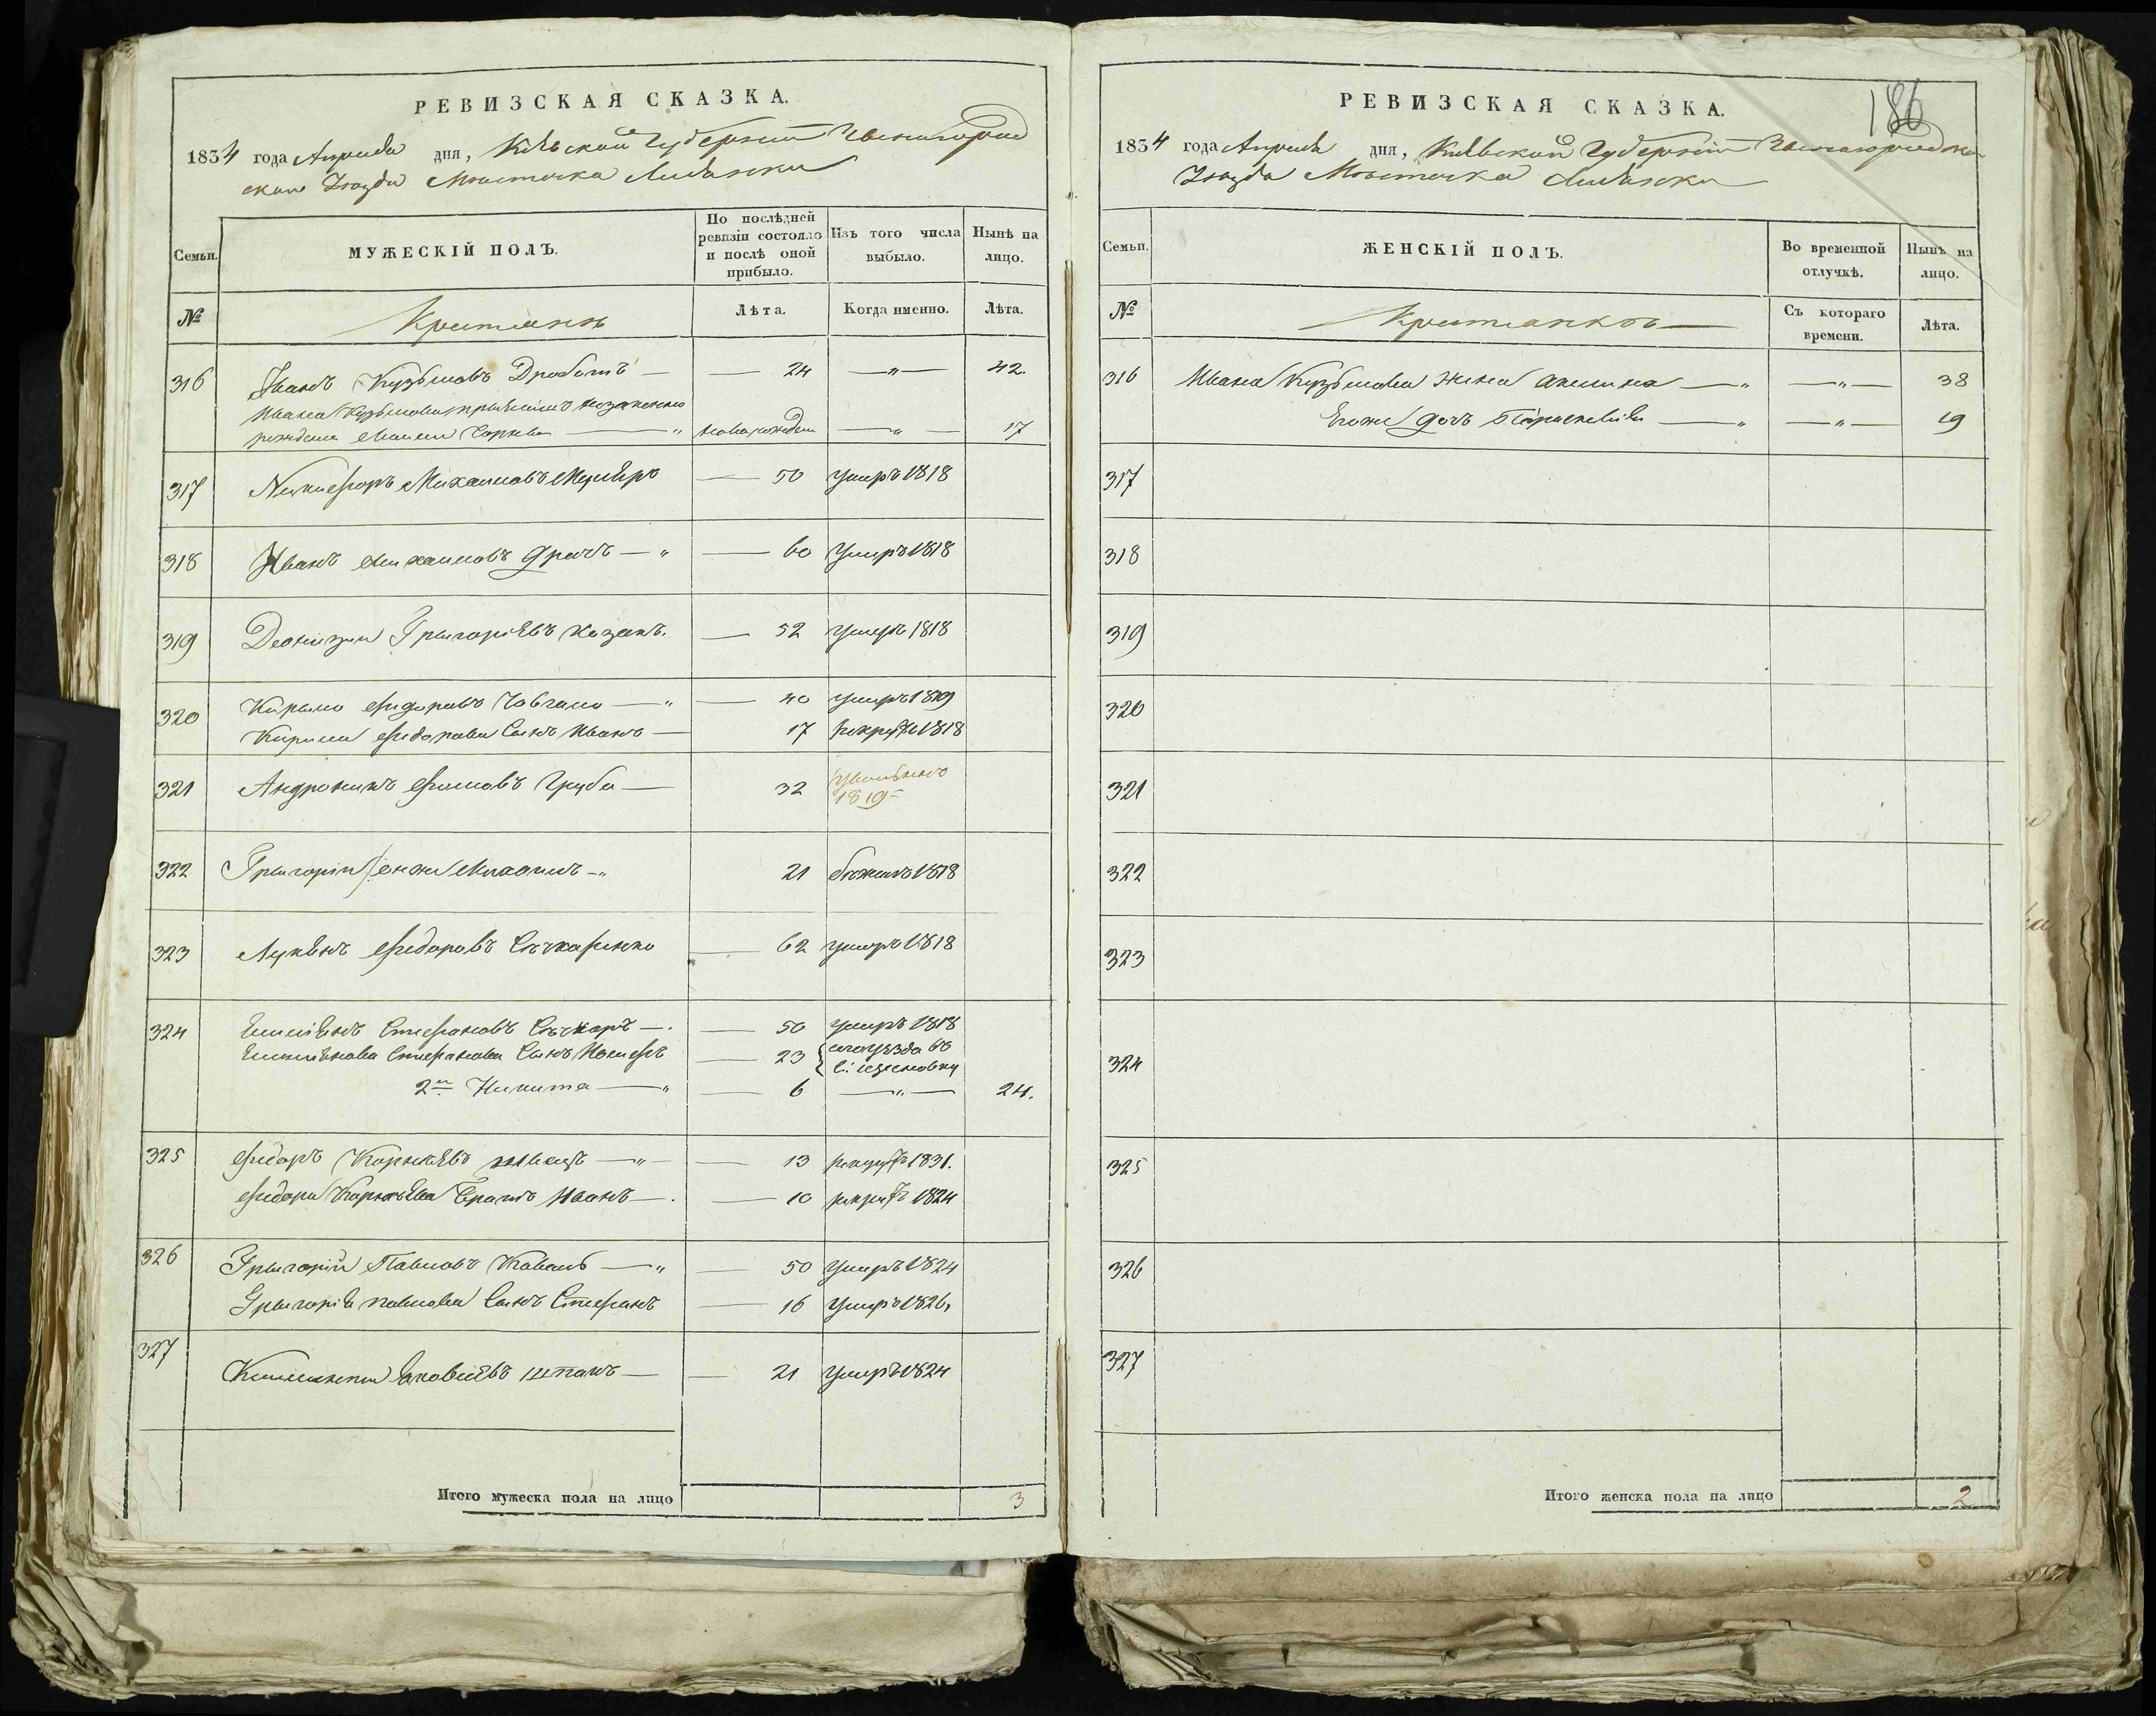 РЕВИЗСКАЯ СКАЗКА.
1834 года Апреля дня, Кіевской Губерніи Звенигород
ской Уезда Местечка Лисянки
Семьи.
МУЖЕСКІЙ ПОЛЪ.
По послѣдней ревизіи состояло и послѣ оной прибыло.
Изъ того числа выбыло.
Нынѣ на лицо.
№
Крестьянъ
Лѣта.
Когда именно.
Лѣта.
316 Иванъ Кузьмовъ Дроботъ — 24 —„— 42.
Ивана Кузьмова незаконно
рожденъ —„ новорожден —„— 17
317 Никифоръ Михаиловъ — 50 умеръ 1818
318 Иванъ Михаиловъ Драчъ —„ — 60 Умеръ 1818
319 Деонизии Григоріевъ Козакъ. — 52 умеръ 1818
320 Кирило Федоровъ Човгало —„ — 40 умеръ 1819
Кирила Федорова Сынъ Иванъ — 17 рекрутъ 1818
321 Андроникъ Фомовъ Груба — 32 1819
322 Григоріи Михаилъ —„ 21 бѣжалъ 1818
323 Лукянъ Федоровъ Сѣчкаренко — 62 умеръ 1818
324 Емиліянъ Стефановъ Сѣчкаръ —. — 50 умеръ 1818
Емиліянова Стефанова Сынъ — 23
2й Никита —„ — 6 —„— 24.
325 Федоръ Корнѣевъ Швецъ —„— — 13 рекрутъ 1831.
Федора Корнѣева Братъ Иванъ —. — 10 рекрутъ 1824
326 Григорій Павловъ Коваль —„ — 50 Умеръ 1824
Григорія Павлова Сынъ Стефанъ — 16 Умеръ 1826.
327 Яковлевъ Шпакъ — — 21 Умеръ 1824
Итого мужеска пола на лицо 3
186
РЕВИЗСКАЯ СКАЗКА.
1834 года Апреля дня, Кіевской Губерніи Звенигородской
Уезда Местечка Лисянки
Семьи.
ЖЕНСКІЙ ПОЛЪ.
Во временной отлучкѣ.
Нынѣ на лицо.
№
Крестьянокъ
Съ котораго времени.
Лѣта.
316 Ивана Кузьмова Жена Акилина —„ —„— 38
Егоже дочь Параскевія —„ —„— 19
317
318
319
320
321
322
323
324
325
326
327
Итого женска пола на лицо 2